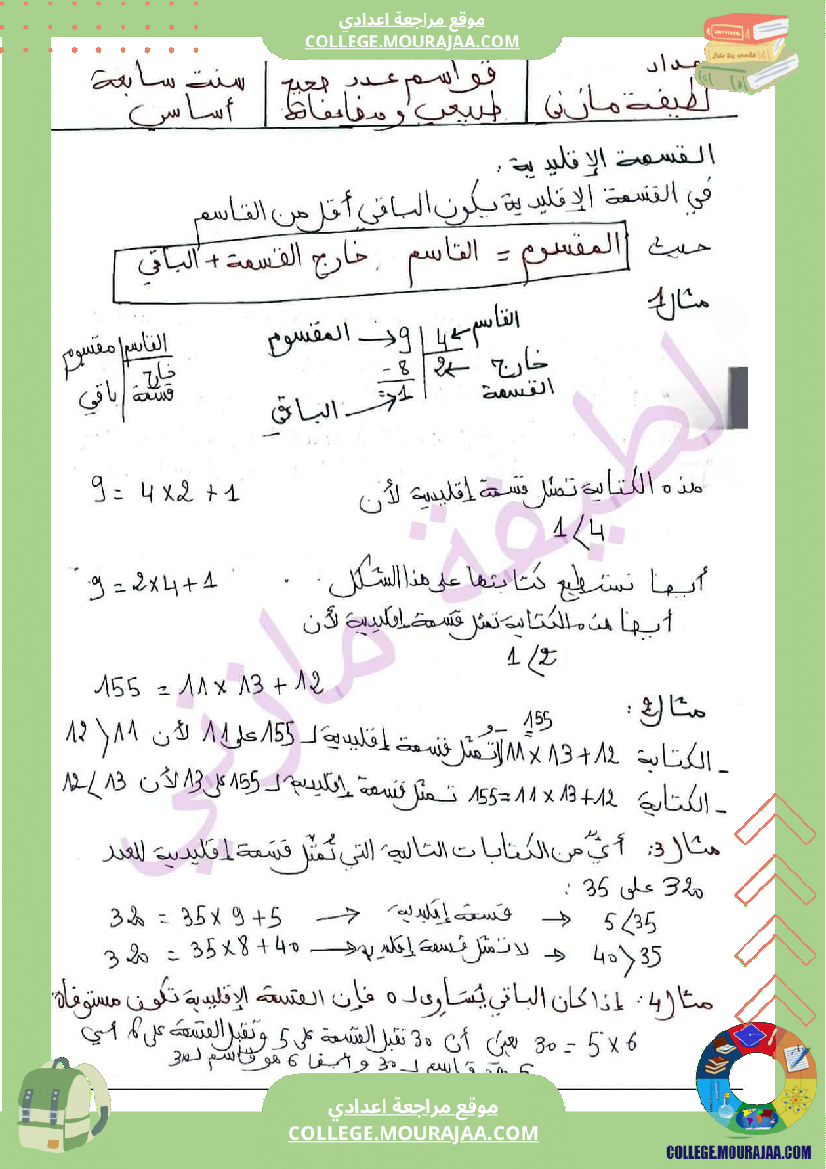 موقع مراجعة اعدادي
COLLEGE.MOURAJAA.COM
عداد
لطيفة مازني
قواسم عدد صحيح
طبيعي ومضاعفاته
سنت سابعة
أساسي
القسمة الإقليدية.
في القسمة الإقليدية يكون الباقي أقل من القاسم
حيث المقسوم = القاسم . خارج القسمة + الباقي
مثال 1
القاسم 4 9 المقسوم
خارج القسمة 2 -8
1 الباقي
القاسم مقسوم
خارج قسمة باقي
هذه الكتابة تمثل قسمة إقليدية لأن 9 = 4 x 2 + 1
1 < 4
أيضا نستطيع كتابتها على هذا الشكل 9 = 2 x 4 + 1
أيضا هذه الكتابة تمثل قسمة إقليدية لأن
1 < 2
155 = 11 x 13 + 12
مثال 2:
155
- الكتابة 11 x 13 + 12 تُمثل قسمة إقليدية لـ 155 على 11 لأن 12 > 11
- الكتابة 155 = 11 x 13 + 12 تمثل قسمة إقليدية لـ 155 على 13 لأن 12 < 13
مثال 3: أيّ من الكتابات التالية التي تُمثل قسمة إقليدية للعدد
320 على 35 :
320 = 35 x 9 + 5 → قسمة إقليدية → 5 < 35
320 = 35 x 8 + 40 → لا تمثل قسمة إقليدية → 40 > 35
مثال 4: إذا كان الباقي يُساوي لـ 0 فإن القسمة الإقليدية تكون مستوفاة
30 = 5 x 6 يعني أن 30 تقبل القسمة على 5 وتقبل القسمة على 6 أي
قاسم لـ 30 و أيضا 6 هو قاسم لـ 30
لطيفة مازني
موقع مراجعة اعدادي
COLLEGE.MOURAJAA.COM
COLLEGE.MOURAJAA.COM